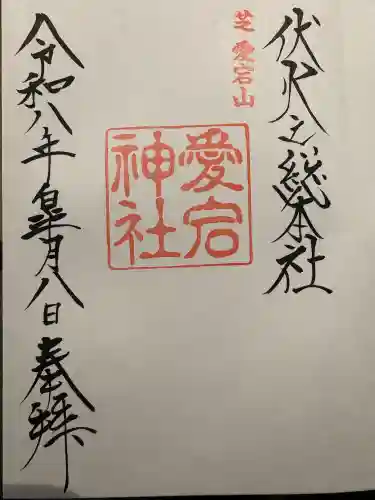 芝愛宕山
伏火之総本社
愛宕
神社
令和八年皐月八日奉拝